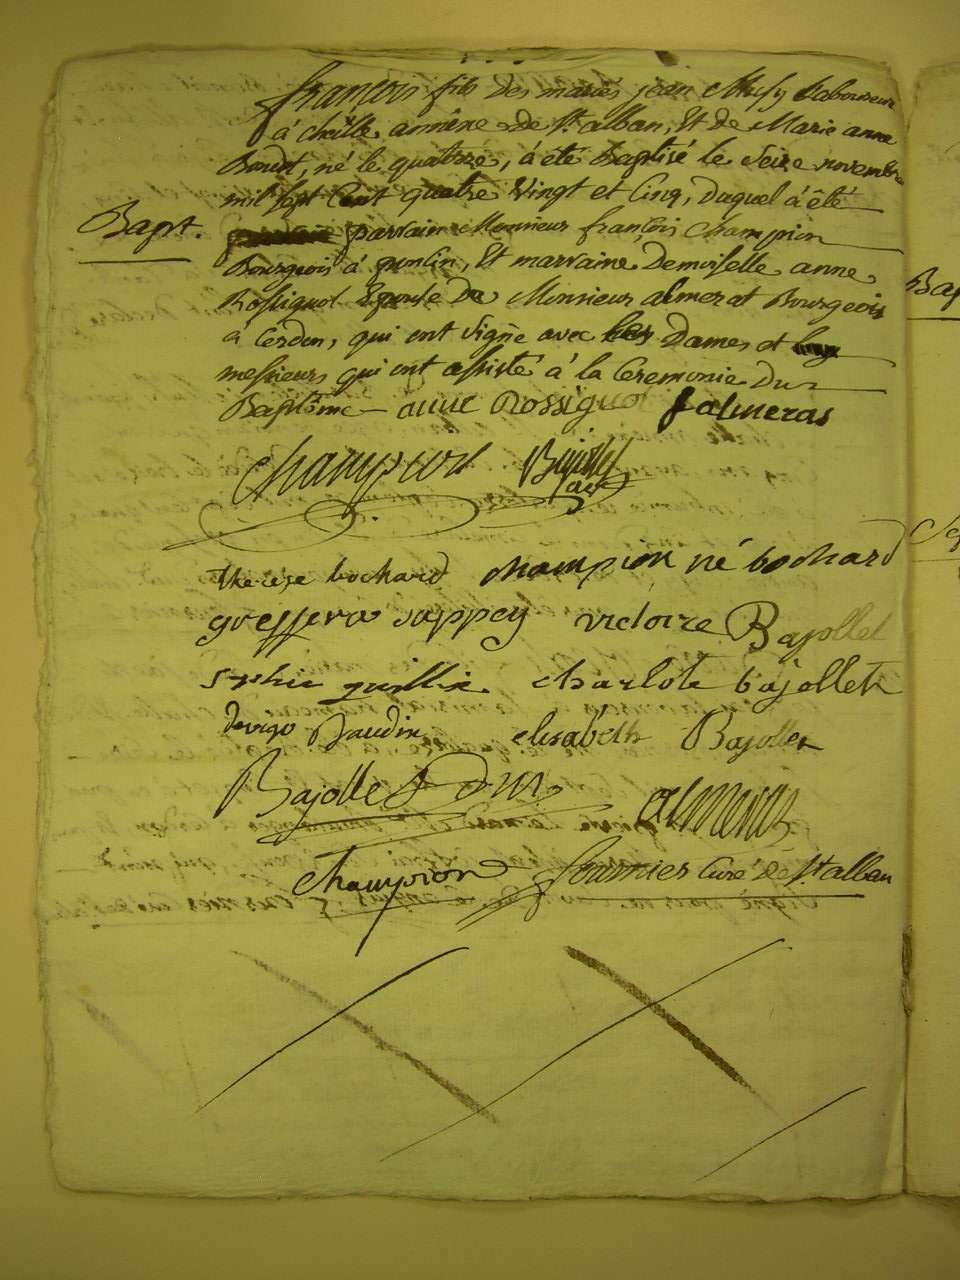 françois fils des mariés jean Laboureur
à annêxe de St alban, Et de Marie anne
né le quatorze, à été Baptisé le Seize novembre
mil sept Cent quatre Vingt et Cinq, duquel à été
Bapt.
parrain Monsieur françois Champion
Bourgeois à poncin, Et marraine Demoiselle anne
Rossignol Epouse De Monsieur almerat Bourgeois
à Cerdon, qui ont signé avec les Dames et
messieurs qui ont assisté à la Ceremonie du
Baptême anne Rossignol falmeras
Champion
therese bochard champion né bochard
greffera sappey victoire Bajollet
sophie guillin charlote bajollet
devigo daudin elisabeth Bajollet
Bajollet Dun almeras
Champion fournier Curé de St alban